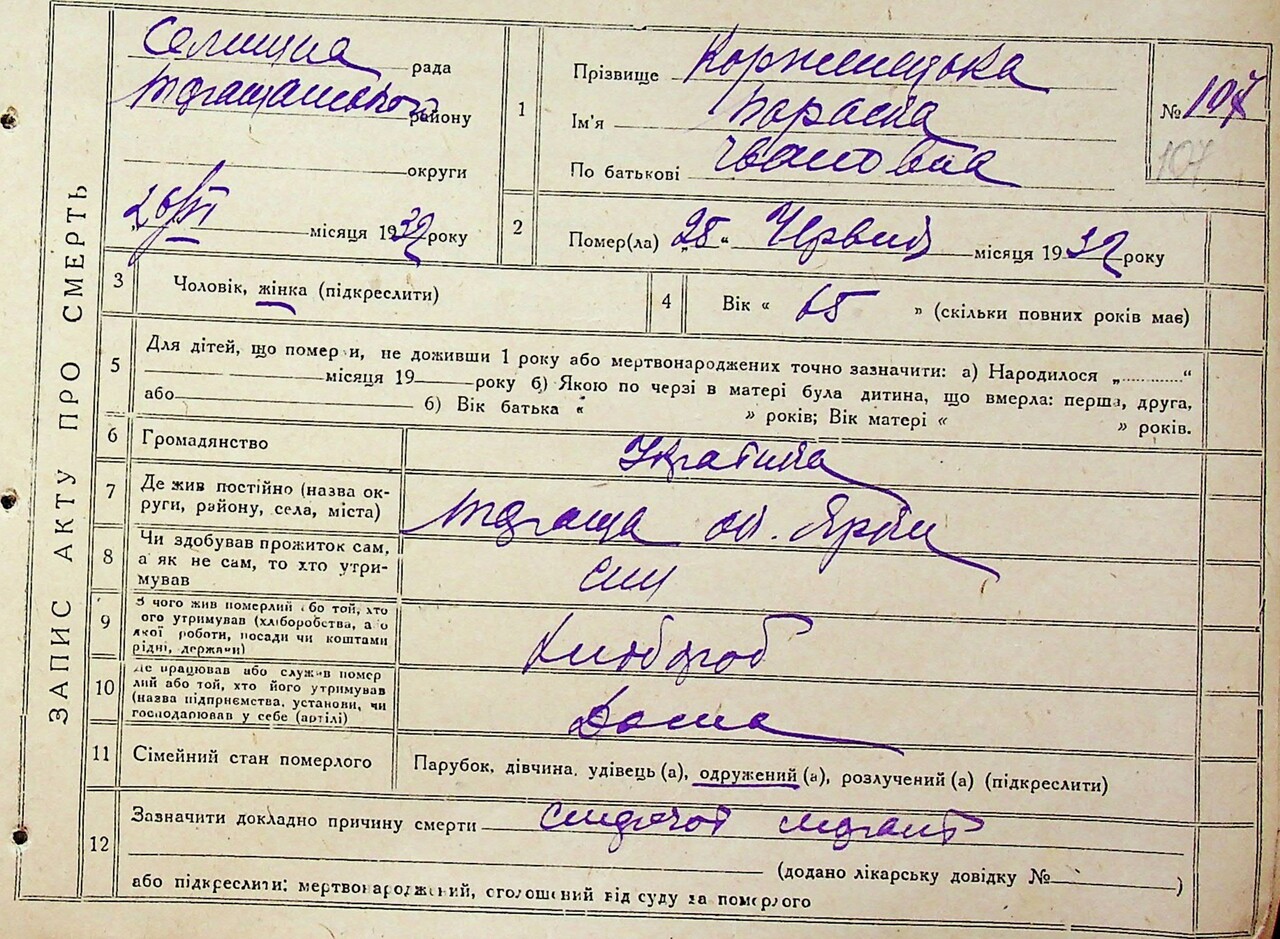 ЗАПИС АКТУ ПРО СМЕРТЬ
Селищна рада
Таращанського району
округи
„26/VI місяця 1932 року
1
Прізвище Коржницька
Ім'я Параска
По батькові Івановна
№ 107
107
2
Помер(ла) „25" Червня місяця 1932 року
3
Чоловік, жінка (підкреслити)
4
Вік « 65 » (скільки повних років має)
5
Для дітей, що померли, не доживши 1 року або мертвонароджених точно зазначити: а) Народилося „............“
місяця 19 року б) Якою по черзі в матері була дитина, що вмерла: перша, друга,
або б) Вік батька « » років; Вік матері « » років.
6
Громадянство
Україна
7
Де жив постійно (назва округи, району, села, міста)
Тараща
8
Чи здобував прожиток сам, а як не сам, то хто утримував
9
З чого жив померлий або той, хто його утримував (хліборобства, а о якої роботи, посади чи коштами рідні, держави)
Хлібороб
10
Де працював або служив померлий або той, хто його утримував (назва підприємства, установи, чи господарював у себе (артілі)
Дома
11
Сімейний стан померлого
Парубок, дівчина, удівець (а), одружений (а), розлучений (а) (підкреслити)
12
Зазначити докладно причину смерти
(додано лікарську довідку № )
або підкреслити: мертвонароджений, оголошений від суду за померлого